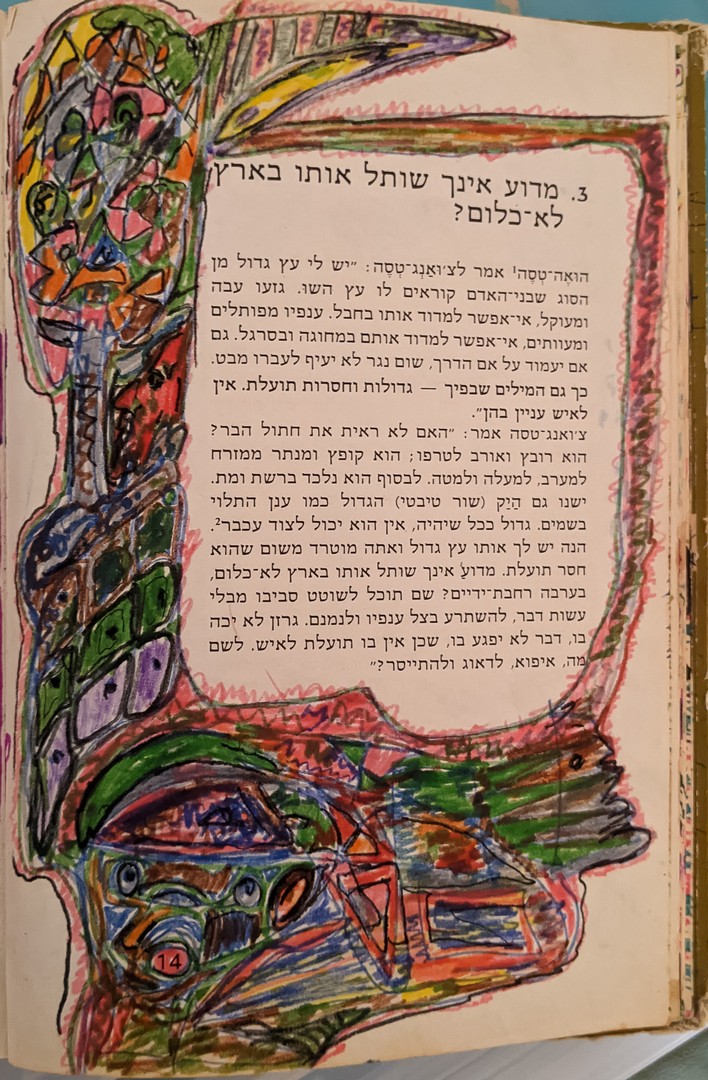 3. מדוע אינך שותל אותו בארץ
לא־כלום?
הוּאֶה־טְסֶה¹ אמר לצ׳וּאַנְג־טְסֶה: ״יש לי עץ גדול מן
הסוג שבני־האדם קוראים לו עץ השוּ. גזעו עבה
ומעוקל, אי־אפשר למדוד אותו בחבל. ענפיו מפותלים
ומעוותים, אי־אפשר למדוד אותם במחוגה ובסרגל. גם
אם יעמוד על אם הדרך, שום נגר לא יעיף לעברו מבט.
כך גם המילים שבפיך — גדולות וחסרות תועלת. אין
לאיש עניין בהן״.
צ׳ואנג־טסה אמר: ״האם לא ראית את חתול הבר?
הוא רובץ ואורב לטרפו; הוא קופץ ומנתר ממזרח
למערב, למעלה ולמטה. לבסוף הוא נלכד ברשת ומת.
ישנו גם הַיַק (שור טיבטי) הגדול כמו ענן התלוי
בשמים. גדול ככל שיהיה, אין הוא יכול לצוד עכבר².
הנה יש לך אותו עץ גדול ואתה מוטרד משום שהוא
חסר תועלת. מדוע אינך שותל אותו בארץ לא־כלום,
בערבה רחבת־ידיים? שם תוכל לשוטט סביבו מבלי
עשות דבר, להשתרע בצל ענפיו ולנמנם. גרזן לא יכה
בו, דבר לא יפגע בו, שכן אין בו תועלת לאיש. לשם
מה, איפוא, לדאוג ולהתייסר?״
14